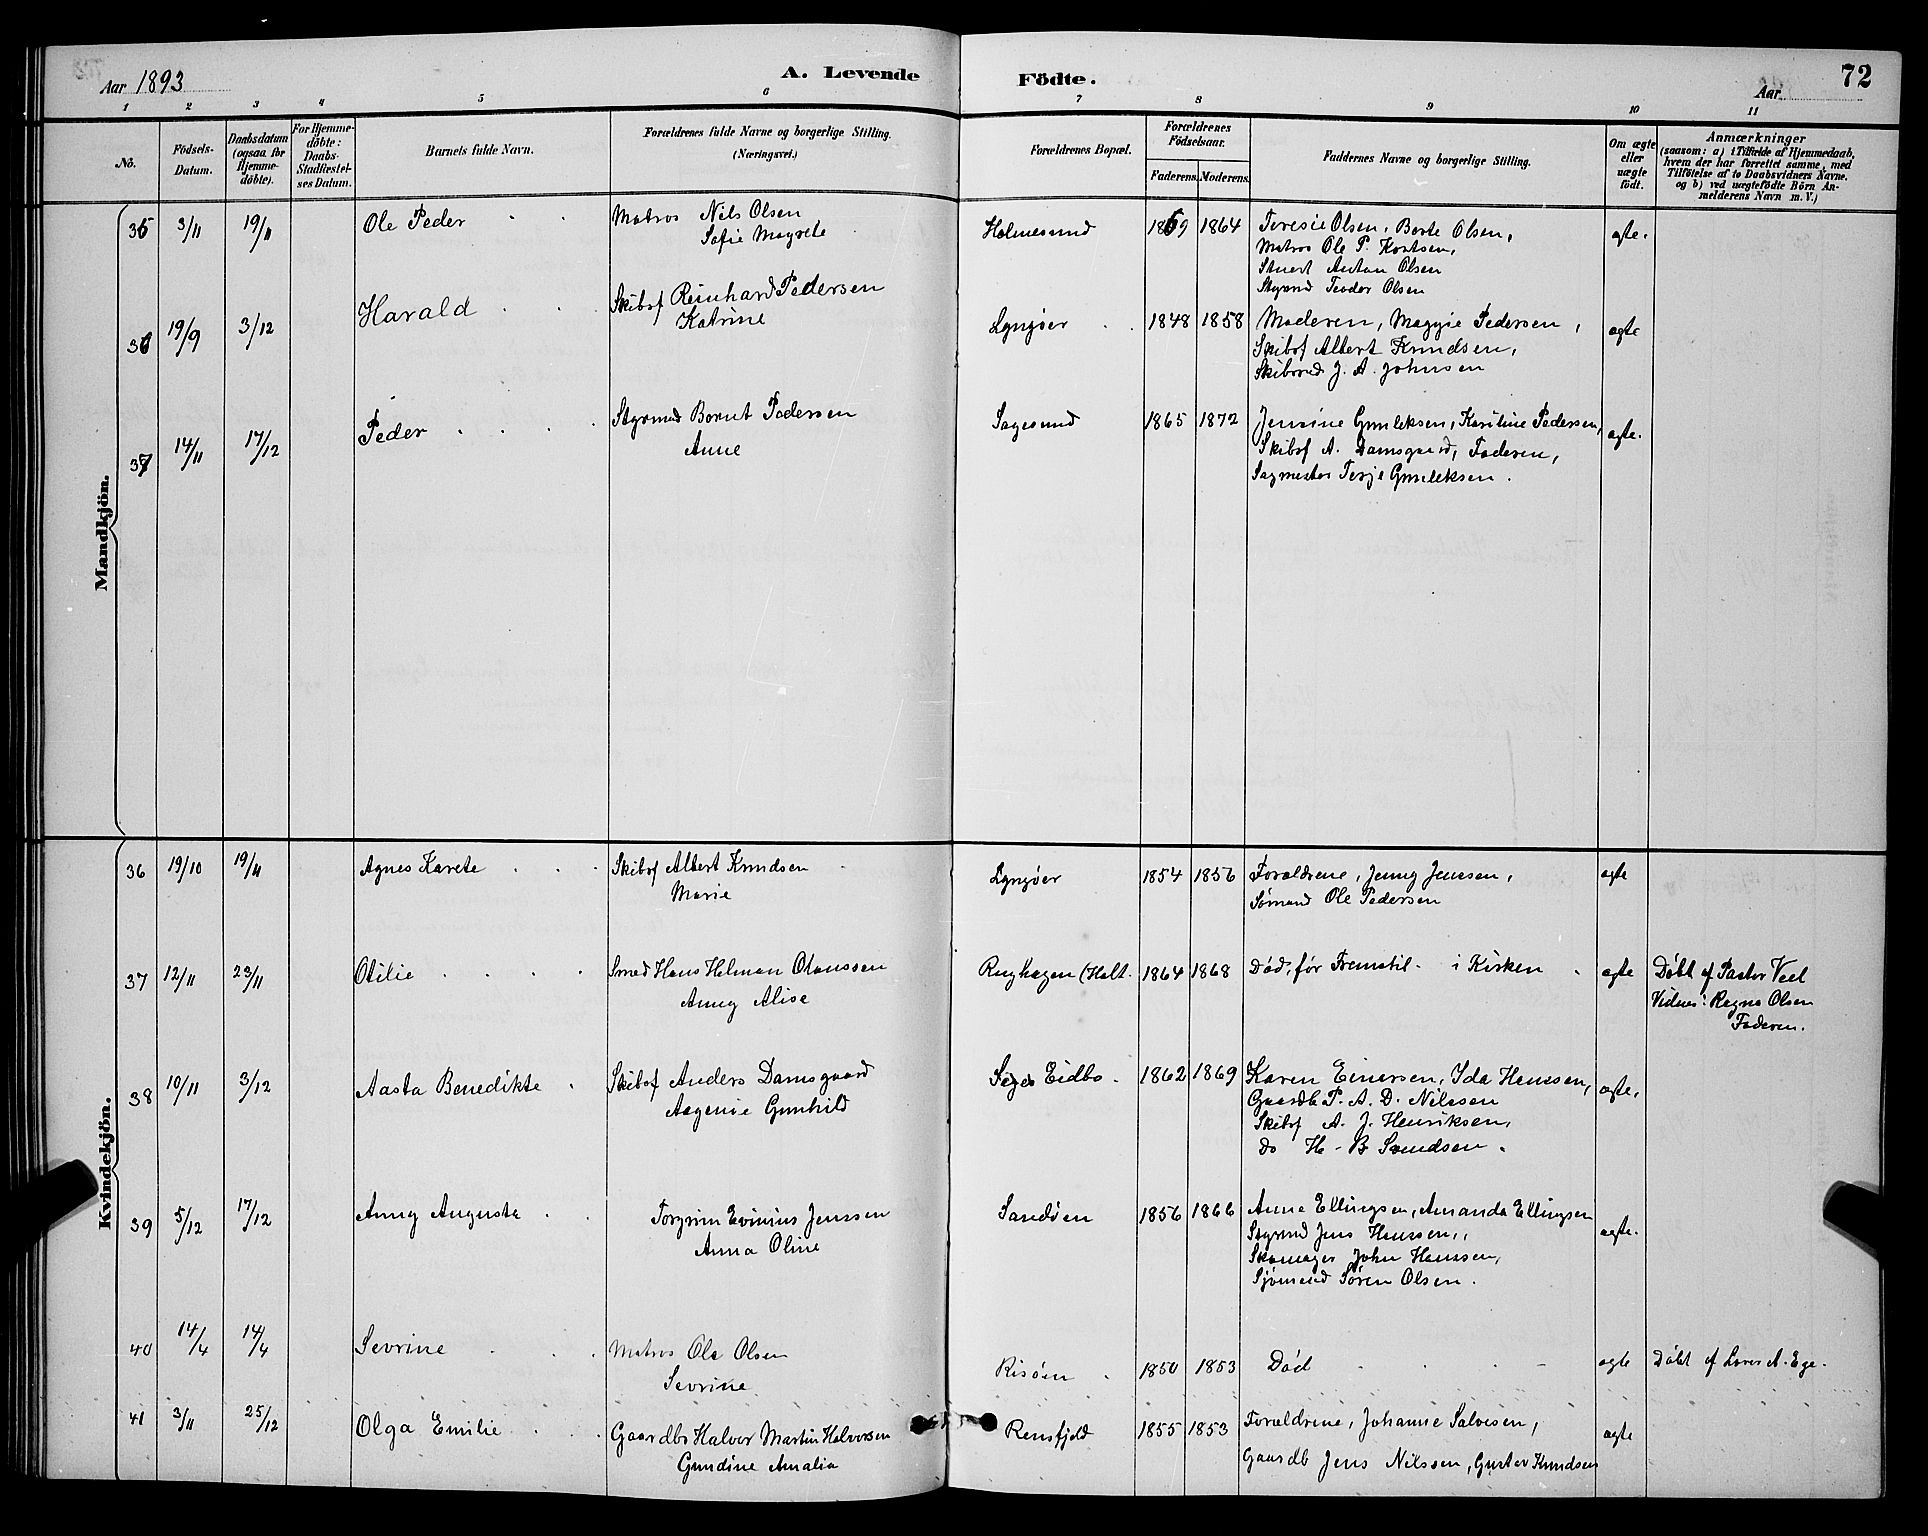 Aar 1893
A. Levende
Födte.
Aar
72
1 2 3 4 5 6 7 8 9 10 11
No.
Födsels-
Datum.
Daabsdatum
(ogsaa for
Hjemme-
döbte).
For Hjemme-
döbte:
Daabs-
Stadfæstel-
ses Datum.
Barnets fulde Navn.
Forældrenes fulde Navne og borgerlige Stilling.
(Næringsvei.)
Forældrenes Bopæl.
Forældrenes
Födselsaar.
Faderens.
Moderens.
Faddernes Navne og borgerlige Stilling.
Om ægte
eller
uægte
födt.
Anmærkninger
(saasom: a) i Tilfælde af Hjemmedaab,
hvem der har forrettet samme, med
Tilföielse af to Daabsvidners Navne.
og b) ved uægtefödte Börn An-
melderens Navn m. V.)
Mandkjön.
35 3/11 19/11 Ole Peder Matros Nils Olsen Holmesund 1869 1864 Teresie Olsen, Berte Olsen, ægte.
Sofie Magrete
Matros Ole P. Knutsen,
Stuert Anton Olsen
Styrmd Teodor Olsen
36 19/9 3/12 Harald Skibsf Reinhard Pedersen Lyngøer 1848 1858 Moderen, Maggie Pedersen, ægte
Katrine
Skibsf Albert Knudsen,
Skibsred J. A. Johnsen
37 14/11 17/12 Peder Styrmd Bernt Pedersen Sagesund 1865 1872 Jensine Gunleksen, Karoline Pedersen, ægte.
Anne
Skibsf A. Damsgaard, Faderen,
Sagmester Terje Gunleksen.
Kvindekjön.
36 19/10 19/11 Agnes Karete Skibsf Albert Knudsen Lyngøer 1854 1856 Forældrene, Jenny Jenssen, ægte
Marie
Sømand Ole Pedersen
37 12/11 23/11 Otilie Smed Hans Helman Olaussen (Holt. 1864 1868 Død, før Fremstil. i Kirken ægte Døbt af Pastor Veel
Anny Alise
Vidner: Ragna Olsen
Faderen.
38 10/11 3/12 Aasta Benedikte Skibsf Anders Damsgaard Eidbo. 1862 1869 Karen Einersen, Ida Henssen, ægte,
Aagenie Gunhild
Gaardb P. A. D. Nilssen
Skibsf A. J. Henriksen,
Do H. B Svendsen.
39 5/12 17/12 Anny Auguste Torgrim Evinius Jenssen Sandøen 1856 1866 Anne Ellingsen, Amanda Ellingsen ægte.
Anna Oline
Styrmd Jens Henssen,,
Skomager John Henssen,
Sjömand Sören Olsen.
40 14/4 14/4 Sevrine Matros Ole Olsen Risøen 1850 1853 Død ægte Døbt af Lærer A. Ege.
Sevrine
41 3/11 25/12 Olga Emilie Gaardbr Halvor Martin Halvorsen Rensfjeld 1855 1853 Forældrene, Johanne Salvesen, ægte
Gundine Amalia
Gaardb Jens Nilssen, Gustav Knudsen